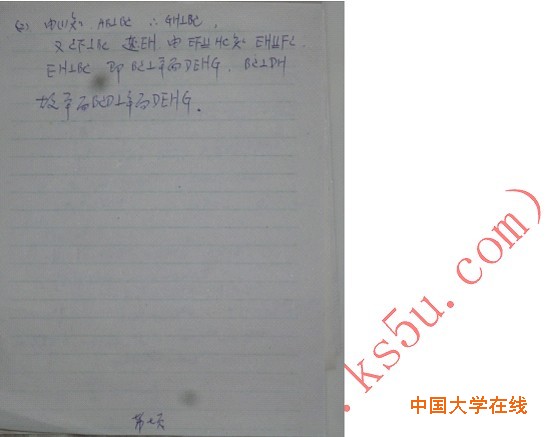 (2) 由(1)知: AB⊥BC ∴ GH⊥BC,
又CF⊥BC 连EH 由EF⊥HC知 EH∥FC
EH⊥BC 即 BC⊥平面DEHG, BC⊥DH
故平面BCD⊥平面DEHG.
.ks5u.com)
中国大学在线